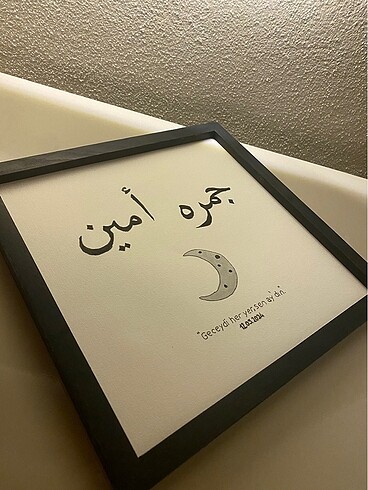 جمره أمين
"Geceydi her yer, sen ay'dın."
12.03.2024